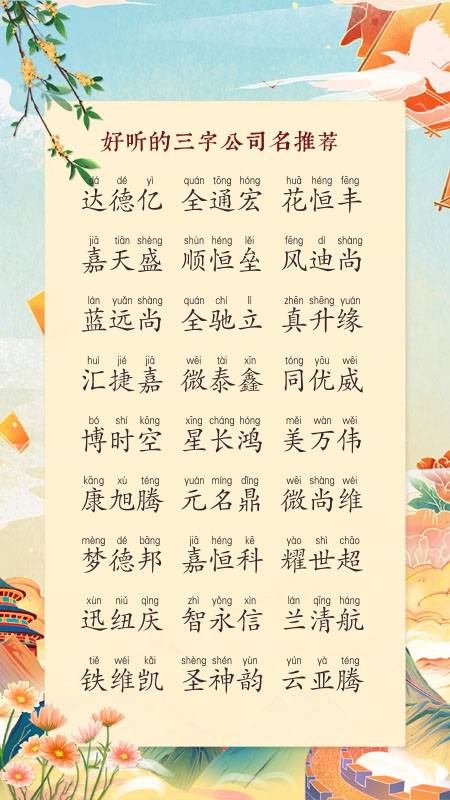 好听的三字公司名推荐
dá dé yì quán tōng hóng huā héng fēng
达德亿 全通宏 花恒丰
jiā tiān shèng shùn héng lěi fēng dí shàng
嘉天盛 顺恒垒 风迪尚
lán yuǎn shàng quán chí lì zhēn shēng yuán
蓝远尚 全驰立 真升缘
huì jié jiā wēi tài xīn tóng yōu wēi
汇捷嘉 微泰鑫 同优威
bó shí kōng xīng cháng hóng měi wàn wěi
博时空 星长鸿 美万伟
kāng xù téng yuán míng dǐng wēi shàng wéi
康旭腾 元名鼎 微尚维
mèng dé bāng jiā héng kē yào shì chāo
梦德邦 嘉恒科 耀世超
xùn niǔ qìng zhì yǒng xìn lán qīng háng
迅纽庆 智永信 兰清航
tiě wéi kǎi shèng shén yùn yún yà téng
铁维凯 圣神韵 云亚腾